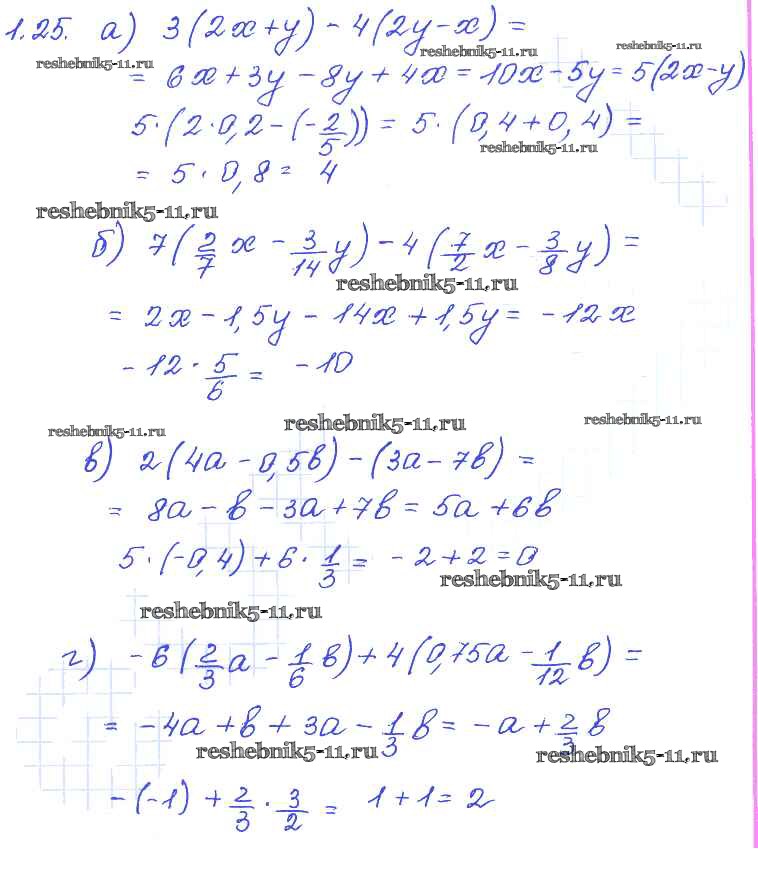 1.25. а) 3(2x+y) - 4(2y-x) =
reshebnik5-11.ru reshebnik5-11.ru reshebnik5-11.ru
= 6x + 3y - 8y + 4x = 10x - 5y = 5(2x-y)
5·(2·0,2 - (-2/5)) = 5·(0,4+0,4) =
reshebnik5-11.ru
= 5·0,8 = 4
reshebnik5-11.ru
б) 7(2/7 x - 3/14 y) - 4(7/2 x - 3/8 y) =
reshebnik5-11.ru
= 2x - 1,5y - 14x + 1,5y = -12x
-12 · 5/6 = -10
reshebnik5-11.ru reshebnik5-11.ru reshebnik5-11.ru
в) 2(4a - 0,5b) - (3a - 7b) =
= 8a - b - 3a + 7b = 5a + 6b
5·(-0,4) + 6 · 1/3 = -2 + 2 = 0
reshebnik5-11.ru
reshebnik5-11.ru
г) -6(2/3 a - 1/6 b) + 4(0,75a - 1/12 b) =
= -4a + b + 3a - 1/3 b = -a + 2/3 b
reshebnik5-11.ru reshebnik5-11.ru
-(-1) + 2/3 · 3/2 = 1 + 1 = 2